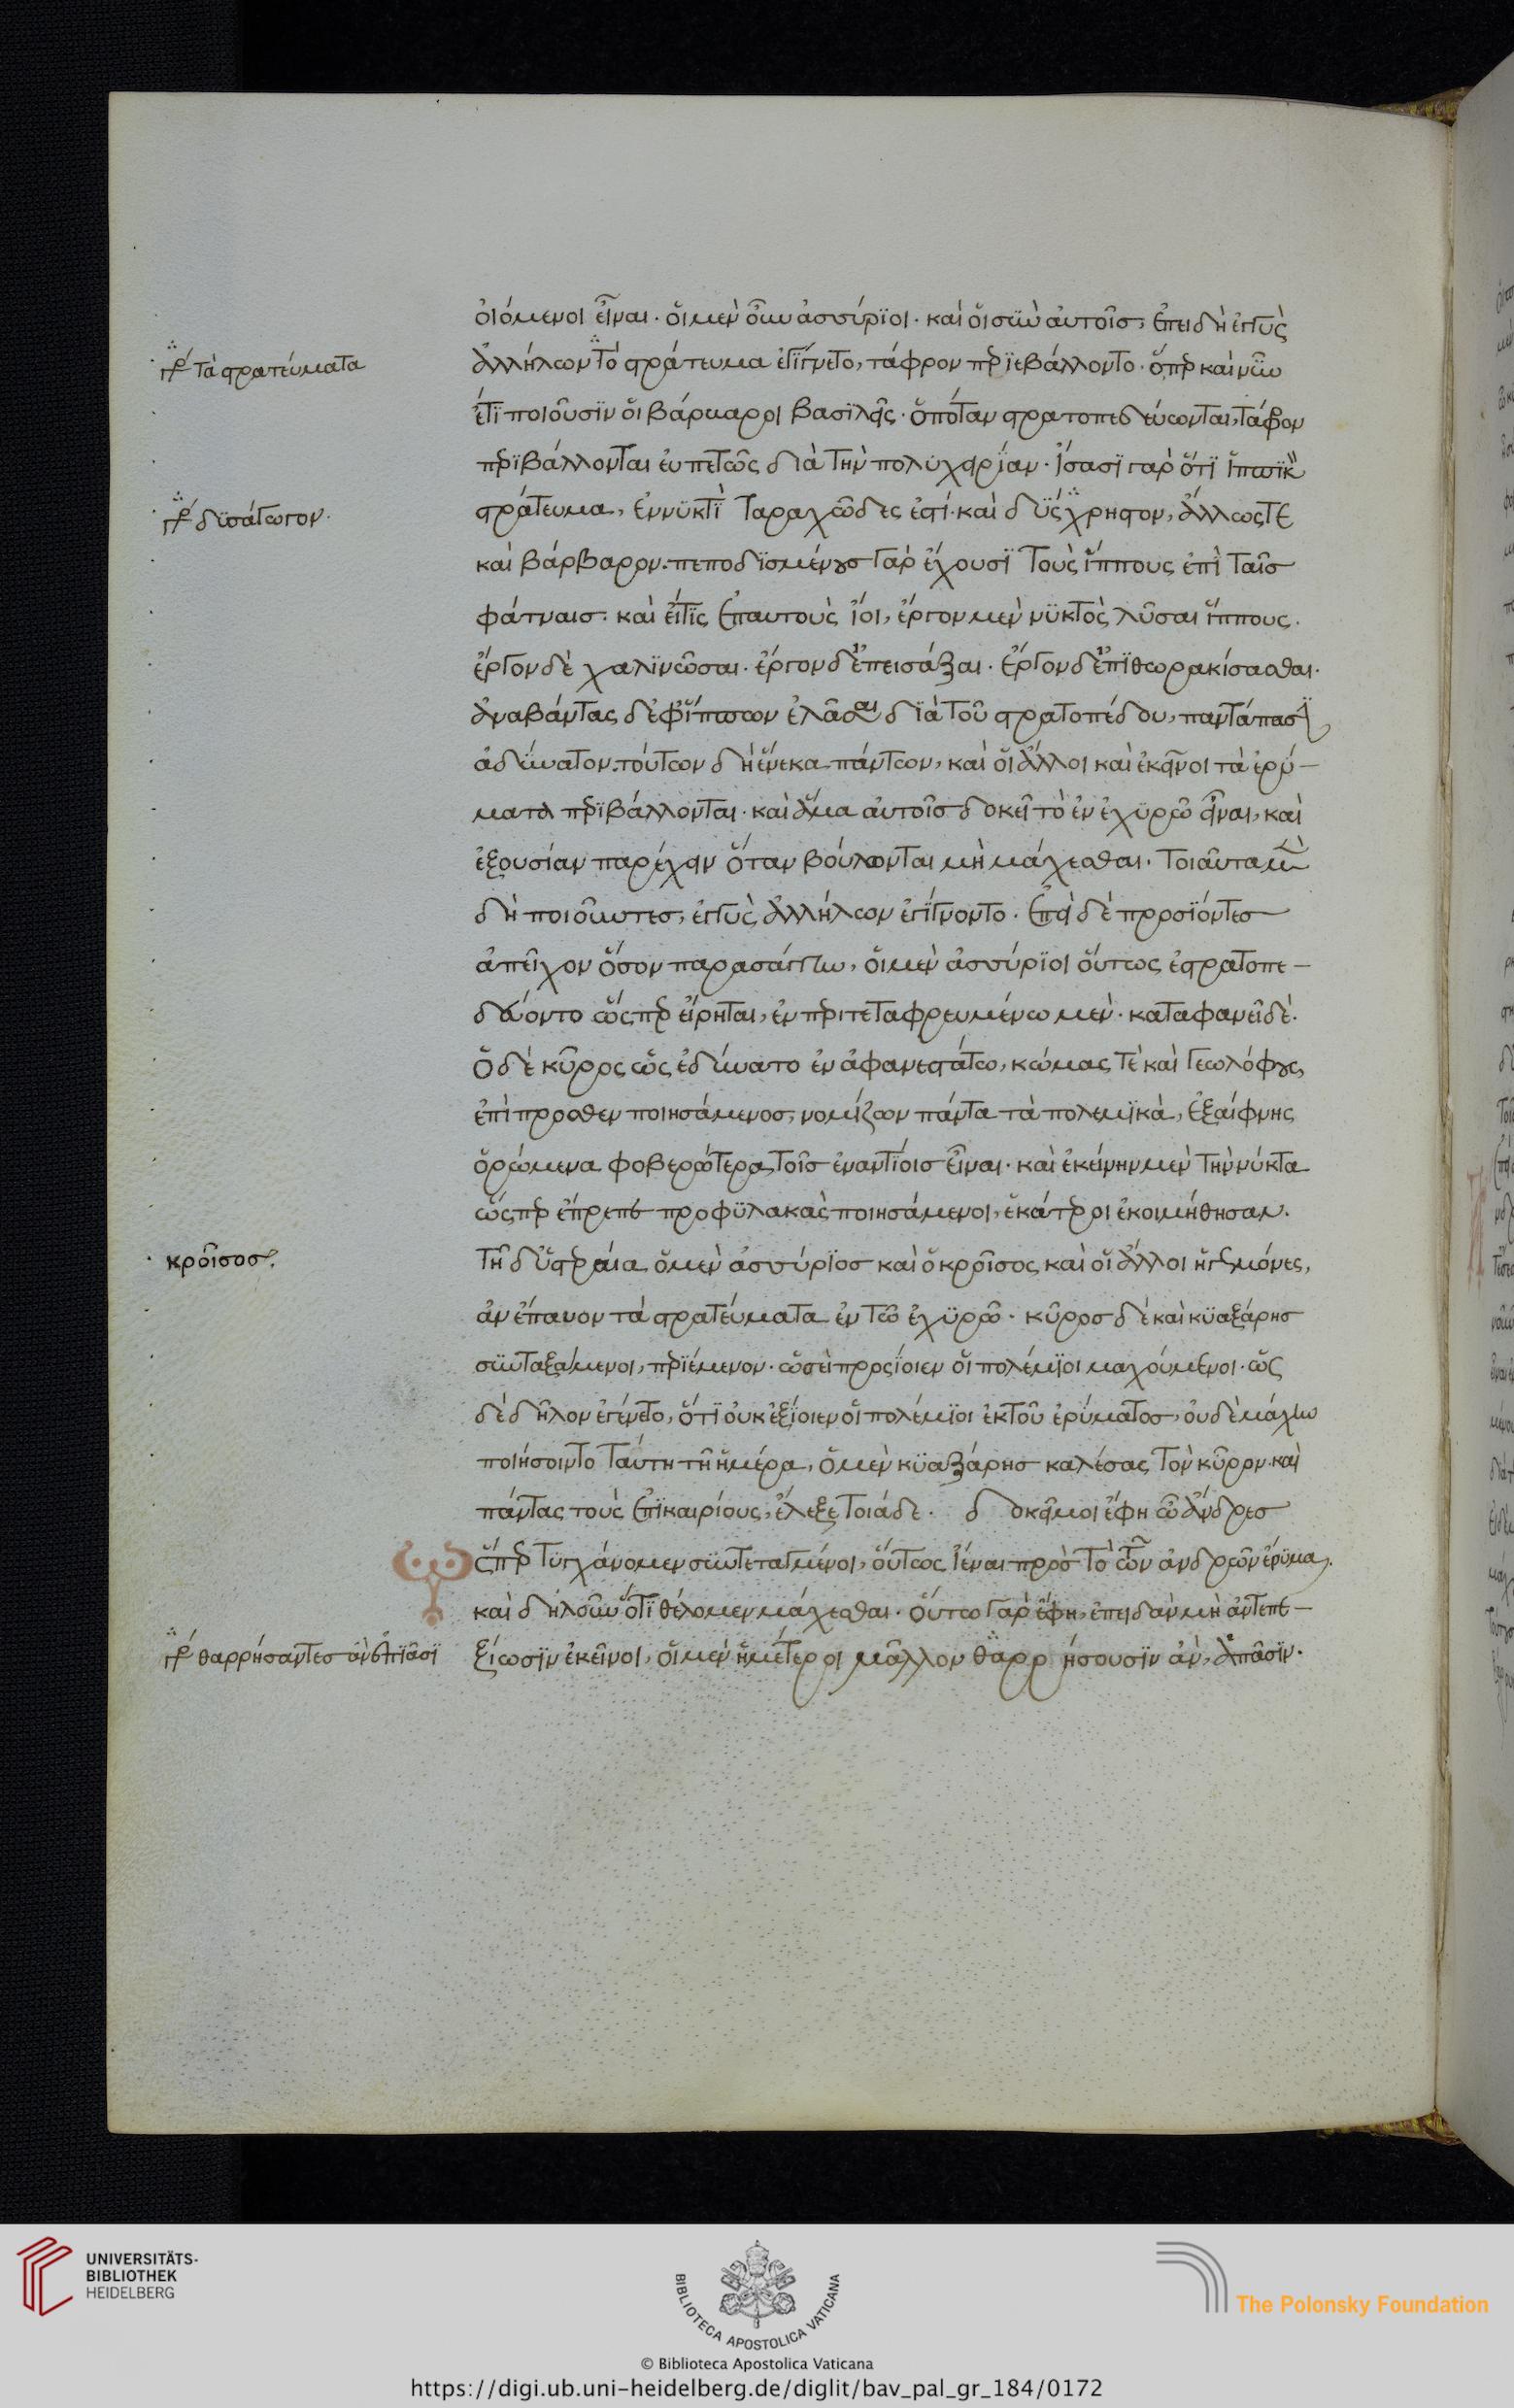 οἰόμενοι εἶναι· οἱ μὲν οὖν ἀσσύριοι· καὶ οἱ σὺν αὐτοῖς, ἐπειδὴ ἐγγὺς
γρ τὰ στρατεύματα
ἀλλήλων τὸ στράτευμα ἐγίγνετο, τάφρον περιεβάλλοντο· ὅπερ καὶ νῦν
ἔτι ποιοῦσιν οἱ βάρβαροι βασιλεῖς· ὁπόταν στρατοπεδεύωνται, τάφρον
περιβάλλονται εὐπετῶς διὰ τὴν πολυχειρίαν· ἴσασι γὰρ ὅτι ἱππικὸν
γρ δϊσάγωγον·
στράτευμα, ἐν νυκτὶ ταραχῶδες ἐστί· καὶ δύσχρηστον, ἄλλως τε
καὶ βάρβαρον· πεποδισμένους γὰρ ἔχουσι τοὺς ἵππους ἐπὶ ταῖς
φάτναις· καὶ εἴ τις ἐπ αὐτοὺς ἴοι, ἔργον μὲν νυκτὸς λῦσαι ἵππους·
ἔργον δὲ χαλινῶσαι· ἔργον δ' ἐπεισάξαι· ἔργον δ' ἐπιθωρακίσασθαι·
ἀναβάντας δ' ἐφ' ἵππων ἐλᾶσαι διὰ τοῦ στρατοπέδου, παντάπασι
ἀδύνατον· τούτων δὴ ἕνεκα πάντων, καὶ οἱ ἄλλοι καὶ ἐκεῖνοι τὰ ἐρύ–
ματα περιβάλλονται· καὶ ἅμα αὐτοῖς δοκεῖ τὸ ἐν ἐχυρῷ εἶναι, καὶ
ἐξουσίαν παρέχειν ὅταν βούλονται μὴ μάχεσθαι· τοιαῦτα μὲν
δὴ ποιοῦντες, ἐγγὺς ἀλλήλων ἐγίγνοντο· ἐπεὶ δὲ προσϊόντες
ἀπεῖχον ὅσον παρασάγγην, οἱ μὲν ἀσσύριοι οὕτως ἐστρατοπε–
δεύοντο ὥσπερ εἴρηται, ἐν περιτεταφρευμένω μὲν· καταφανεῖ δὲ·
ὁ δὲ κῦρος ὡς ἐδύνατο ἐν ἀφανεστάτω, κώμας τὲ καὶ γεωλόφους,
ἐπίπροσθεν ποιησάμενος, νομίζων πάντα τὰ πολεμικὰ, ἐξαίφνης
ὁρώμενα φοβερώτερα τοῖς ἐναντίοις εἶναι· καὶ ἐκείνην μὲν τὴν νύκτα
ὥσπερ ἔπρεπε προφυλακὰς ποιησάμενοι, ἑκάτεροι ἐκοιμήθησαν·
κροῖσος·
τῆ δ' ὑστεραία ὁ μὲν ἀσσύριος καὶ ὁ κροῖσος καὶ οἱ ἄλλοι ἡγεμόνες,
ἀν έπαυον τὰ στρατεύματα ἐν τῶ ἐχυρῶ· κῦρος δὲ καὶ κυαξάρης
συνταξάμενοι, περιέμενον· ὡς εἰ προσίοιεν οἱ πολέμιοι μαχούμενοι· ὡς
δὲ δῆλον ἐγένετο, ὅτι οὐκ ἐξίοιεν οἱ πολέμιοι ἐκ τοῦ ἐρύματος, οὐδὲ μάχην
ποιήσοιντο ταύτη τῆ ἡμέρα, ὁ μὲν κυαξάρης καλέσας τὸν κῦρον· καὶ
πάντας τοὺς ἐπικαιρίους, ἔλεξε τοιάδε· δοκεῖ μοι ἔφη ὦ ἄνδρες
ὥσπερ τυγχάνομεν συντεταγμένοι, οὕτως ἰέναι πρὸς τὸ τῶν ἀνδρῶν ἔρυμα·
καὶ δηλοῦν ὅτι θέλομεν μάχεσθαι· οὕτω γὰρ ἔφη, ἐπειδὰν μὴ ἀντεπε–
γρ θαρρήσαντες ἂν ἐπίασϊ
ξίωσιν ἐκεῖνοι, οἱ μὲν ἡμέτεροι μᾶλλον θαρρήσουσιν ἀν, ἀπᾶσιν·
UNIVERSITÄTS-
BIBLIOTHEK
HEIDELBERG
BIBLIOTECA APOSTOLICA VATICANA
The Polonsky Foundation
© Biblioteca Apostolica Vaticana
https://digi.ub.uni-heidelberg.de/diglit/bav_pal_gr_184/0172